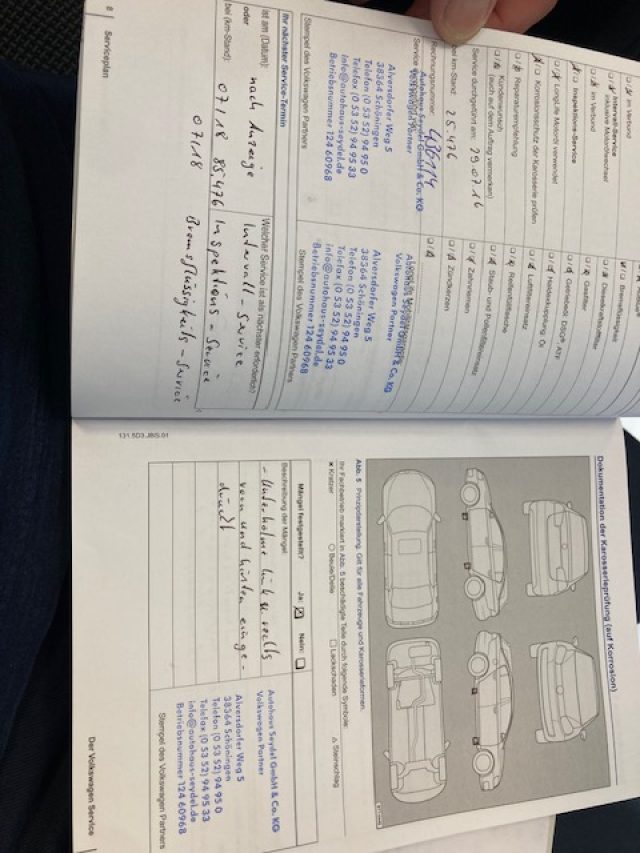 ☐/☐ Im Verbund
Intervall-Service
☐/☐ inklusive Motorölwechsel
☐/☐ im Verbund
Inspektions-Service
☐/☐ LongLife Motoröl verwendet
☐/☐ Korrosionsschutz der Karosserie prüfen
☐/☐ Reparaturempfehlung
☐/☐ Kundenwunsch
(auch auf dem Auftrag vermerken)
Service durchgeführt am: 29.07.16
bei km-Stand: 25.476
Rechnungsnummer: 436914
Autohaus Seydel GmbH & Co. KG
Volkswagen Partner
Alversdorfer Weg 5
38364 Schöningen
Telefon (0 53 52) 94 95 0
Telefax (0 53 52) 94 95 33
info@autohaus-seydel.de
Betriebsnummer 124 60968
Stempel des Volkswagen Partners
☐/☐ Bremsflüssigkeit
☐/☐ Dieselkraftstofffilter
☐/☐ Gasfilter
☐/☐ Getriebeöl: DSG®, ATF
☐/☐ Haldexkupplung: Öl
☐/☐ Luftfiltereinsatz
☐/☐ Reifenfüllflasche
☐/☐ Staub- und Pollenfiltereinsatz
☐/☐ Zahnriemen
☐/☐ Zündkerzen
☐/☐
Autohaus Seydel GmbH & Co. KG
Volkswagen Partner
Alversdorfer Weg 5
38364 Schöningen
Telefon (0 53 52) 94 95 0
Telefax (0 53 52) 94 95 33
info@autohaus-seydel.de
Betriebsnummer 124 60968
Stempel des Volkswagen Partners
Ihr nächster Service-Termin
ist am (Datum):
oder
bei (km-Stand):
Welcher Service ist als nächster erforderlich?
nach Anzeige Intervall-Service
07/18 85.476 Inspektions-Service
07/18 Bremsflüssigkeits-Service
8 Serviceplan
Dokumentation der Karosserieprüfung (auf Korrosion)
Abb. 5 Prinzipdarstellung: Gilt für alle Fahrzeuge und Karosserieformen.
Ihr Fachbetrieb markiert in Abb. 5 beschädigte Teile durch folgende Symbole:
× Kratzer ○ Beule/Delle □ Lackschaden △ Steinschlag
Mängel festgestellt? Ja: ☒ Nein: ☐
Beschreibung der Mängel:
- Unterholme links u. rechts
vorn und hinten einge-
drückt
Autohaus Seydel GmbH & Co. KG
Volkswagen Partner
Alversdorfer Weg 5
38364 Schöningen
Telefon (0 53 52) 94 95 0
Telefax (0 53 52) 94 95 33
info@autohaus-seydel.de
Betriebsnummer 124 60968
Stempel des Volkswagen Partners
131.5D3.JBS.01
Der Volkswagen Service